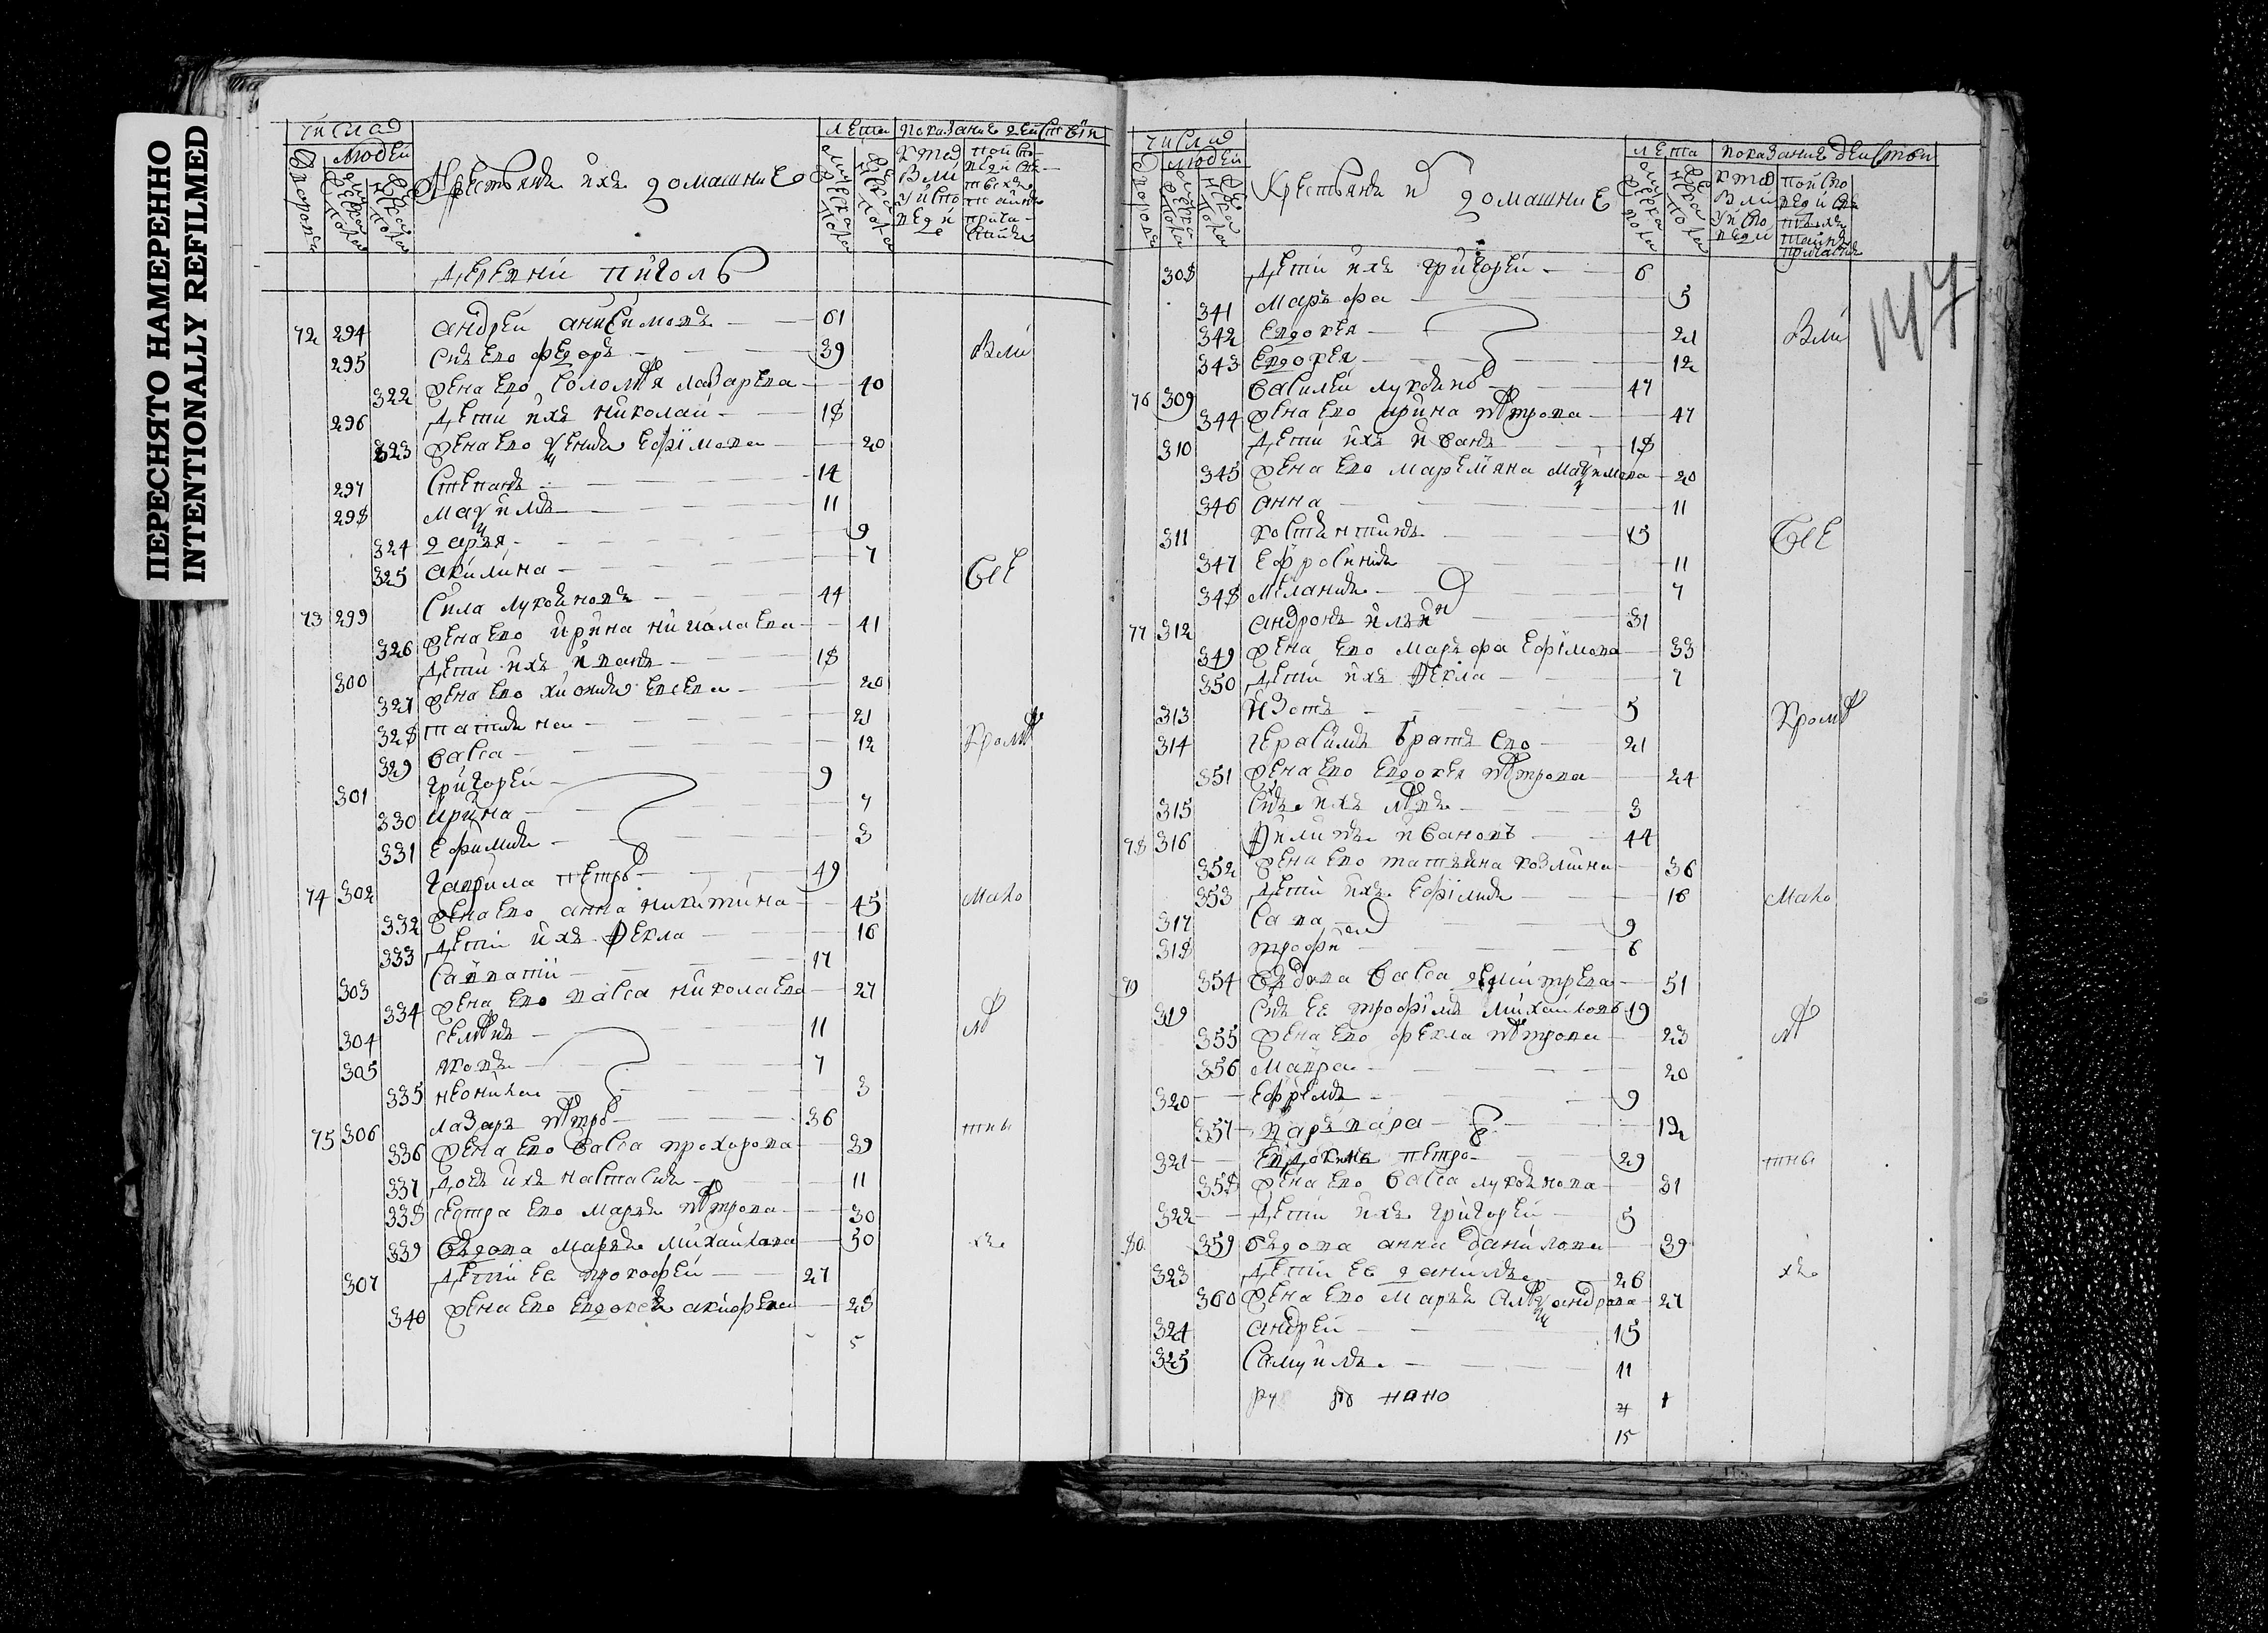 ПЕРЕСНЯТО НАМЕРЕННО
INTENTIONALLY REFILMED
числа
людей
лета
показание действий
крестьяне и их домашние
деревни Пиголь
72 294 андрей анисимовъ 61
295 снъ ево федоръ 39 Были
322 жена ево соломѣя лазарева 40
296 дети ихъ николай 18
323 жена ево ѯения ефимова 20
297 степанъ 14
298 маѯимъ 11
324 дарья 9
325 акилина 7 все
73 299 сила лукьяновъ 44
326 жена ево ирина николаева 41
300 дети ихъ иванъ 18
327 жена ево хиония евсева 20
328 татьяна 21 кромѣ
329 васса 12
301 григорей 9
330 ирина 7
331 ефимья 3
74 302 гаврила петро 49
332 жена ево анна никитина 45 мало
333 дети ихъ фекла 16
303 17
334 жена ево васса николаева 27
304 семѣнъ 11 лѣ
305 яковъ 7
335 неонила 3
75 306 лазарь пѣтро 36 тны
336 жена ево васса прохорова 39
337 дочь ихъ настасия 11
338 сестра ево марья пѣтрова 30
339 вдова марья михайлова 50 хъ
307 дети ее прокофей 27
340 жена ево евдокея 23
5
числа
людей
лета
показание действи
крестьяне и домашние
147
308 дети ихъ григорей 6
341 марѳа 5
342 евдокея 21 Были
343 евдокея 12
76 309 василей лукьяно 47
344 жена ево ирина пѣтрова 47
310 дети ихъ иванъ 18
345 жена ево маремьяна маѯимова 20
346 анна 11
311 костянтинъ 15 все
347 ефросиния 11
348 мѣлания 7
77 312 андронъ ильин 31
349 жена ево марѳа ефимова 33
350 дети ихъ фекла 7
313 изотъ 5 кромѣ
314 герасимъ братъ ево 21
351 жена ево евдокея пѣтрова 24
315 снъ ихъ лѣвъ 3
78 316 филипъ ивановъ 44
352 жена ево татьяна козмина 36
353 дети ихъ ефимия 16 мало
317 сава 9
318 трофи 6
79 354 вдова васса демитрева 51
319 снъ ее трофимъ михайловъ 19 лѣ
355 жена ево фекла пѣтрова 23
356 мавра 20
320 ефремъ 9
357 варвара 12
321 евдокимъ петро 29 тны
358 жена ево васса лукьянова 31
322 дети ихъ григорей 5
80 359 вдова анна данилова 39
323 дети ее данилъ 26 хъ
360 жена ево марья алѣѯандрова 27
324 андрей 15
325 самуилъ 11
15